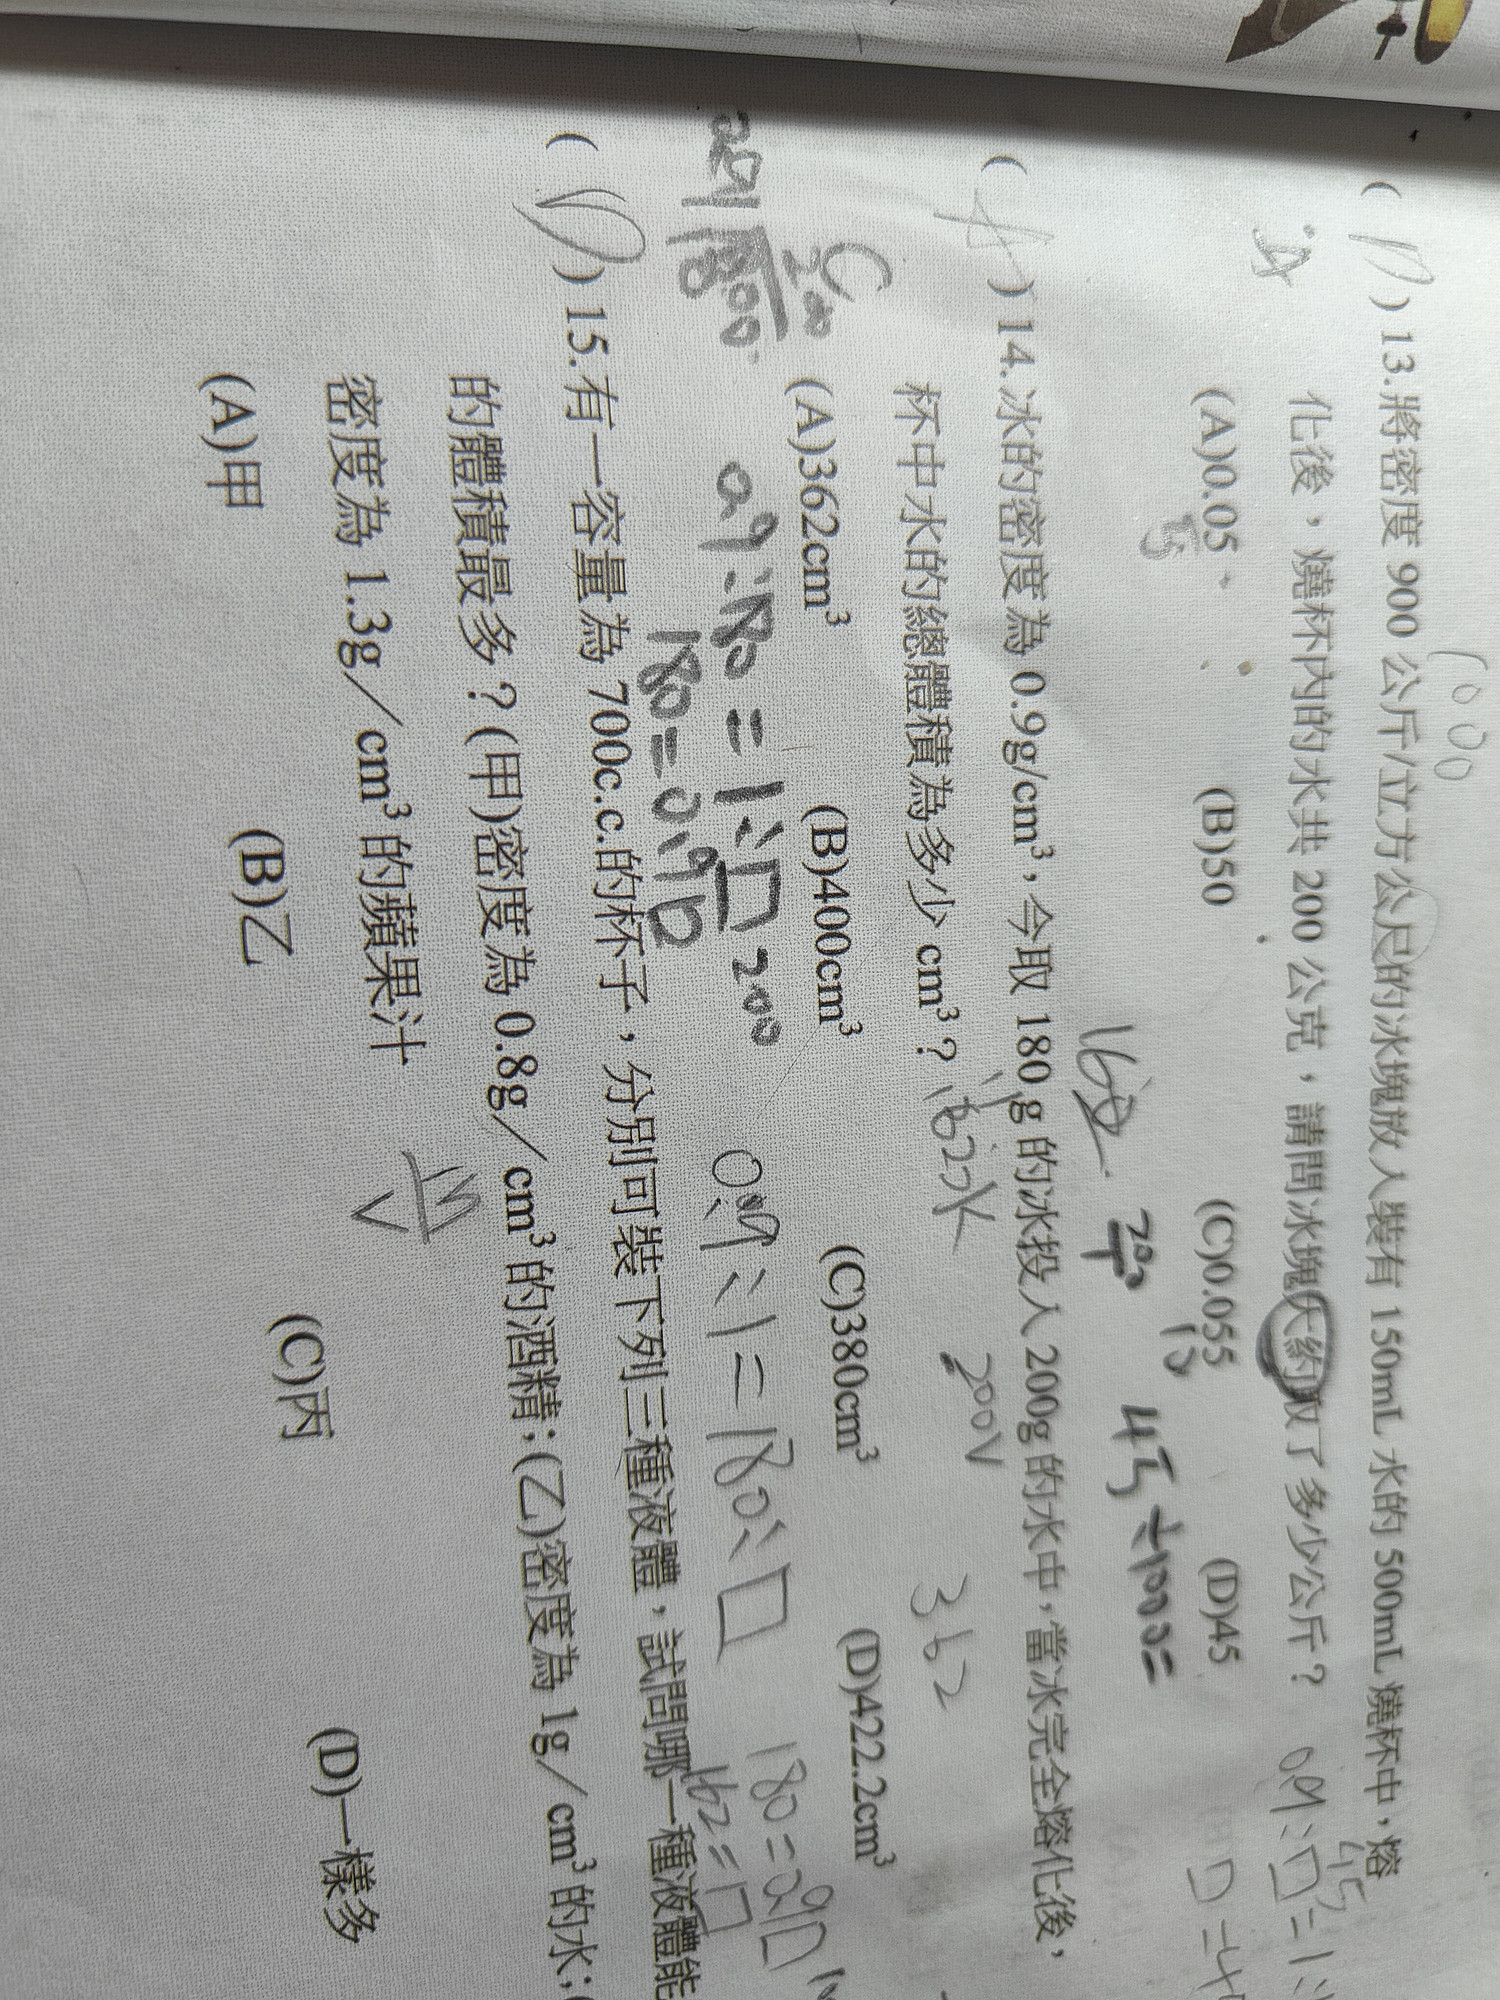 1000
( D ) 13.將密度 900 公斤/立方公尺的冰塊放入裝有 150mL 水的 500mL 燒杯中，熔
化後，燒杯內的水共 200 公克，請問冰塊大約取了多少公斤？
(A)0.05 (B)50 (C)0.055 (D)45
45÷1000=
( A ) 14.冰的密度為 0.9g/cm³，今取 180 g 的冰投入 200g 的水中，當冰完全熔化後，
杯中水的總體積為多少 cm³？
200V
362
(A)362cm³ (B)400cm³ (C)380cm³ (D)422.2cm³
C
0.9:180=1:□ 200
180=0.9□
0.9:1=180:□
180=0.9□
162=□
( D ) 15.有一容量為 700c.c.的杯子，分別可裝下列三種液體，試問哪一種液體能
的體積最多？(甲)密度為 0.8g／cm³ 的酒精；(乙)密度為 1g／cm³ 的水；(
密度為 1.3g／cm³ 的蘋果汁
(A)甲 (B)乙 (C)丙 (D)一樣多